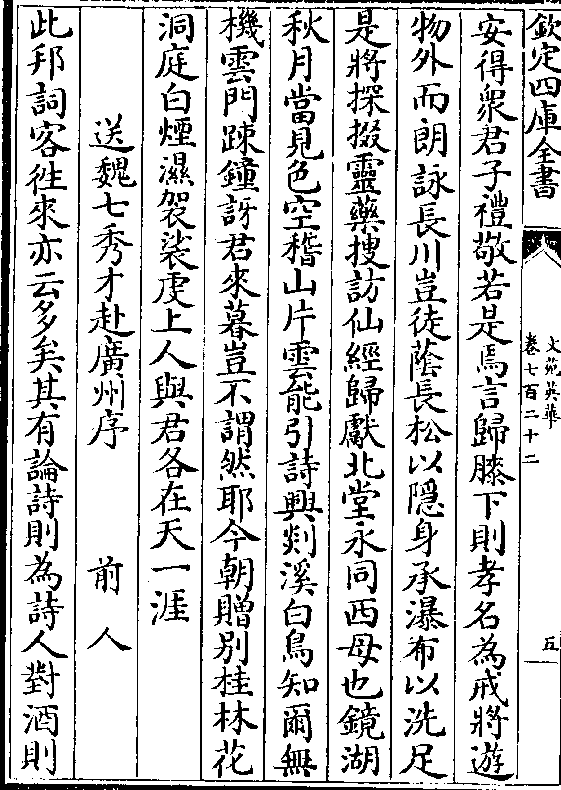 欽定四庫全書
文苑英華
卷七百二十二
五
安得衆君子禮敬若是焉言歸膝下則孝名為戒將遊
物外而朗詠長川豈徒蔭長松以隠身承瀑布以洗足
是將探掇靈藥搜訪仙經歸獻北堂永同西母也鏡湖
秋月當見色空稽山片雲能引詩興剡溪白鳥知爾無
機雲門踈鐘訝君來暮豈不謂然耶今朝贈別桂林花
洞庭白煙濕袈裟虔上人與君各在天一涯
送魏七秀才赴廣州序　前人
此邦詞客徃來亦云多矣其有論詩則為詩人對酒則